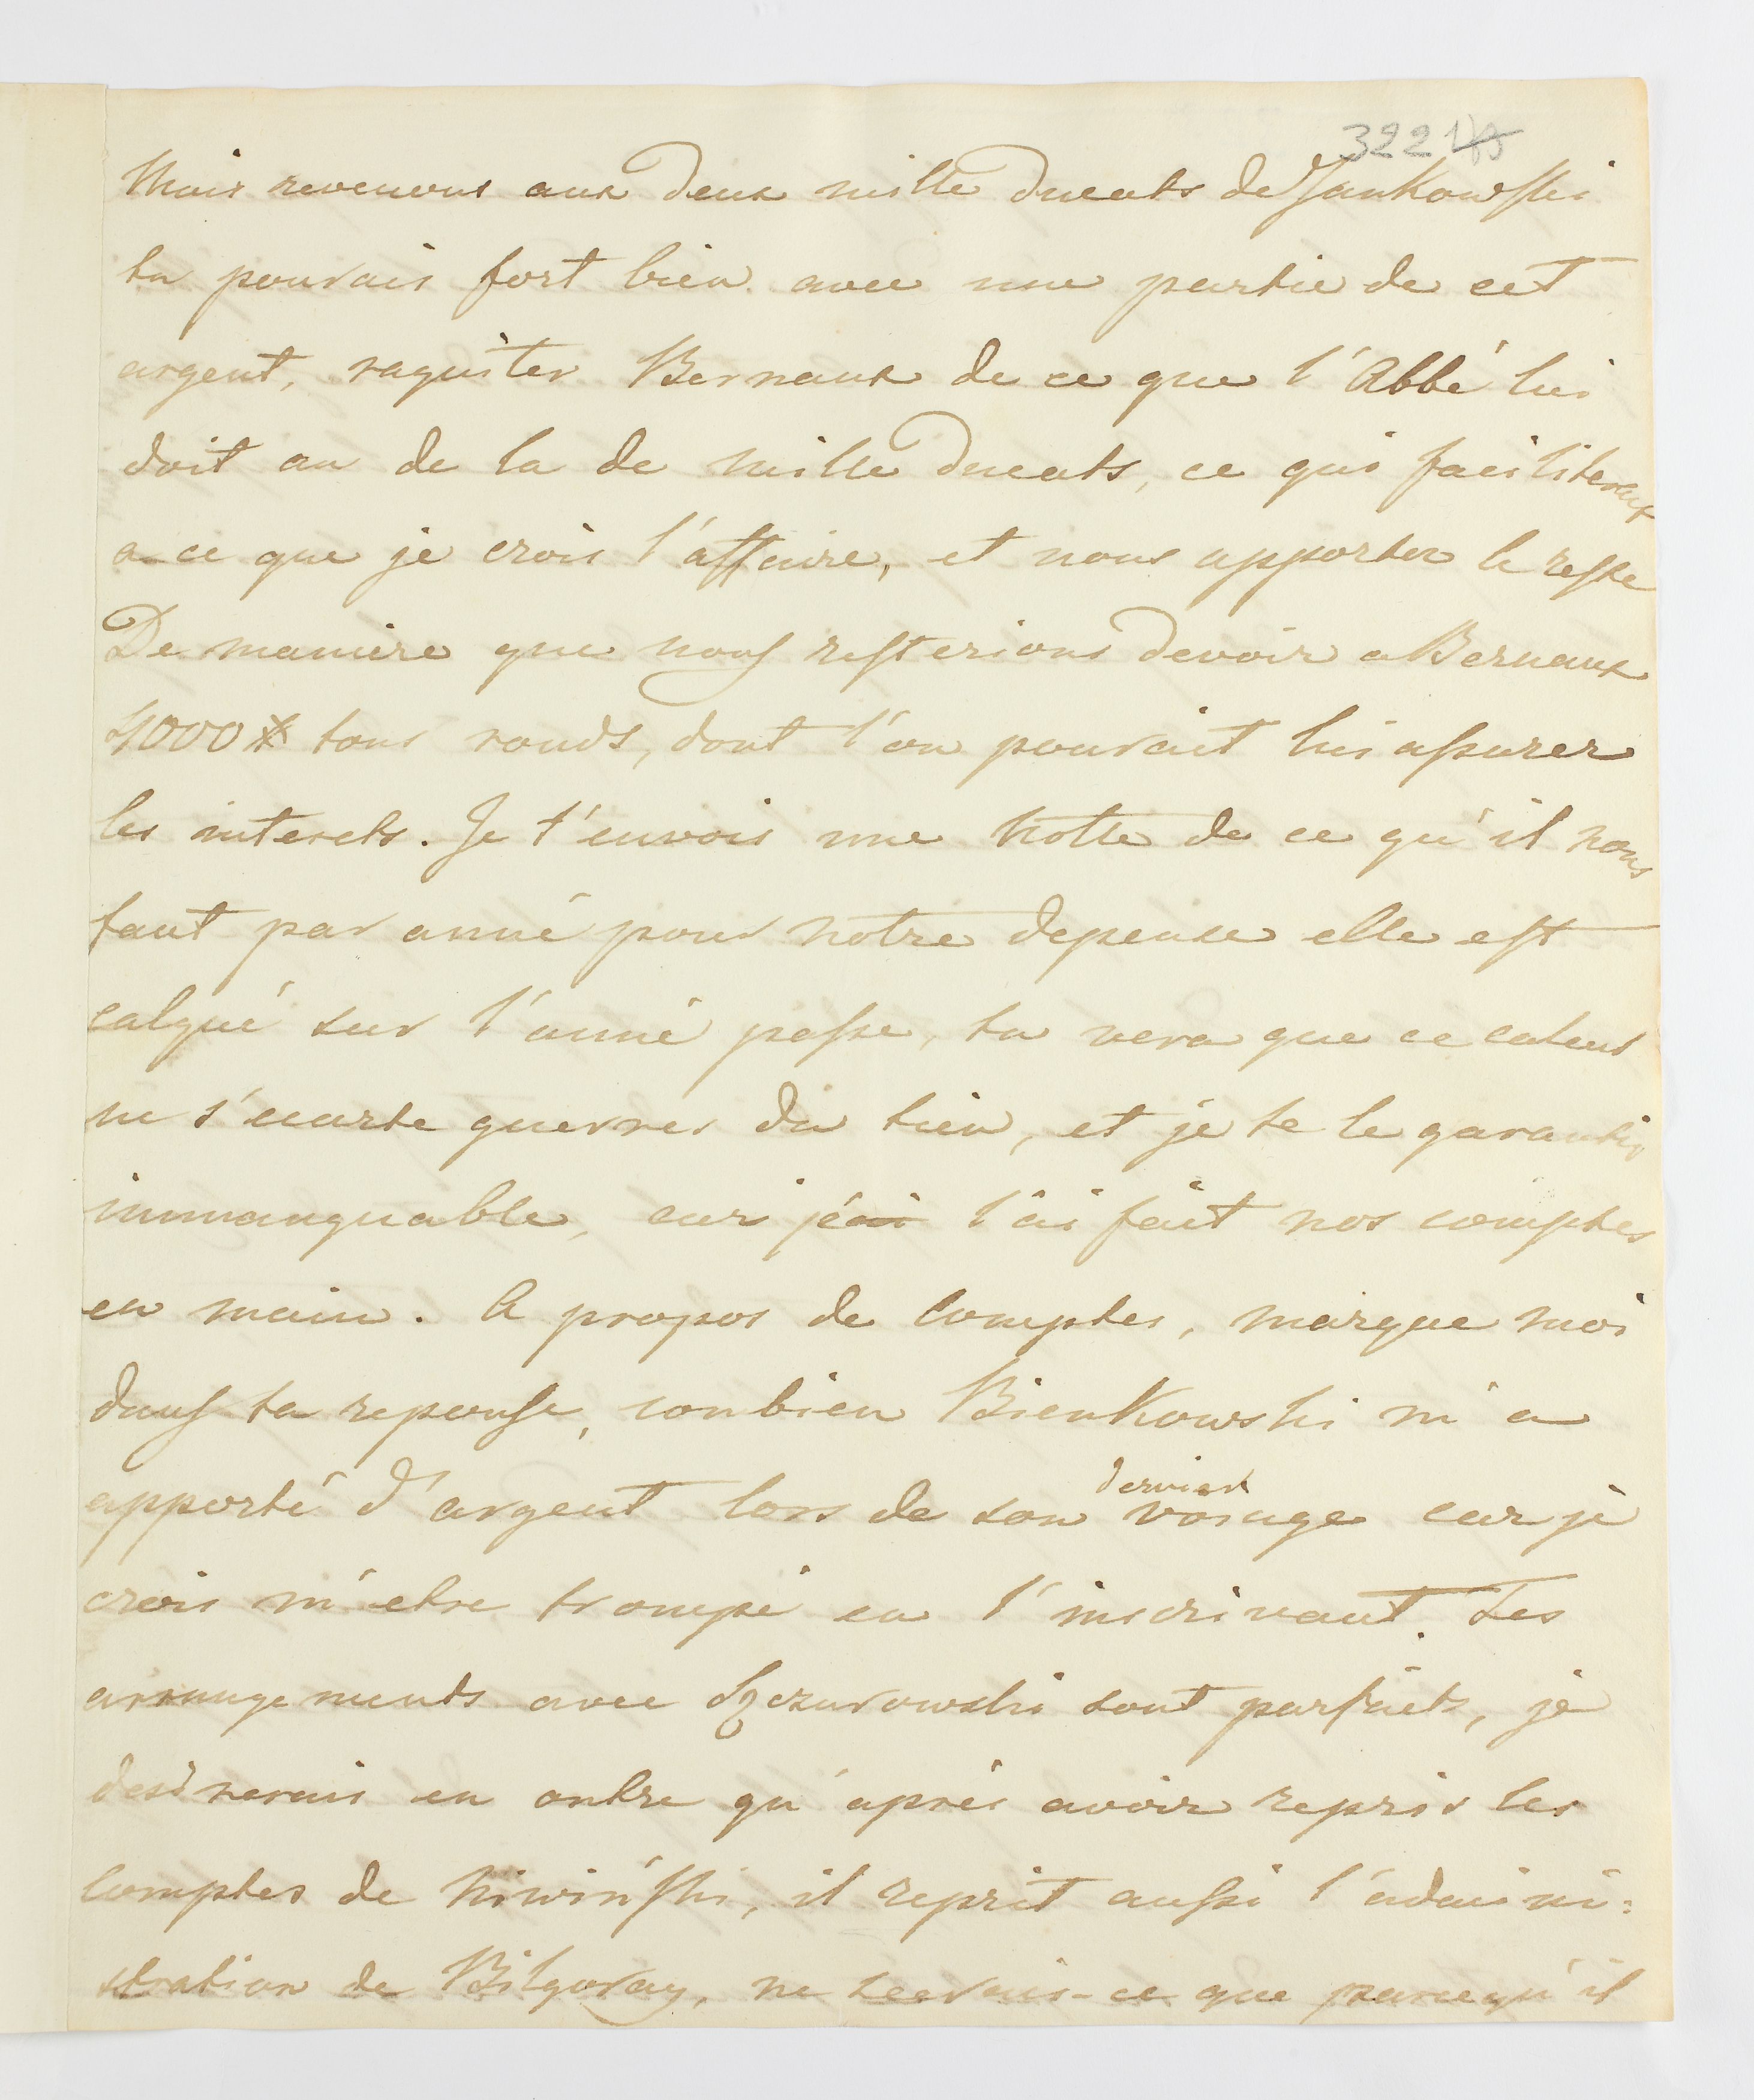 322
Mais revenons aux deux mille ducats de Jankowski
tu pourais fort bien avec une partie de cet
argent, raquiter Bernaux de ce que l'Abbé lui
doit au de la de mille ducats, ce qui faciliterait
a ce que je crois l'affaire, et nous apporter le reste
De maniere que nous resterions devoir a Bernaux
1000 # tous ronds, dont l'on pourait lui assurer
les interets. Je t'envois une notte de ce qu'il nous
faut par anné pour notre depense elle est
calqué sur l'anné passe, tu vera que ce calcul
ne s'ecarte guerres du tien, et je te le garantis
immanquable, car j'ai l'ai fait nos comptes
en main. A propos de comptes, marque moi
dans ta reponse, conbien Bienkowski m'a
apporté d'argent lors de son dernier voiage car je
crois m'etre trompé en l'inscrivant. Tes
arrangements avec Szczurowski sont parfaits, je
desirerais en outre qu'aprés avoir repris les
comptes de Niwiński, il reprit aussi l'admini=
stration de Bilgoray, ne seerais-ce que parcequ'il